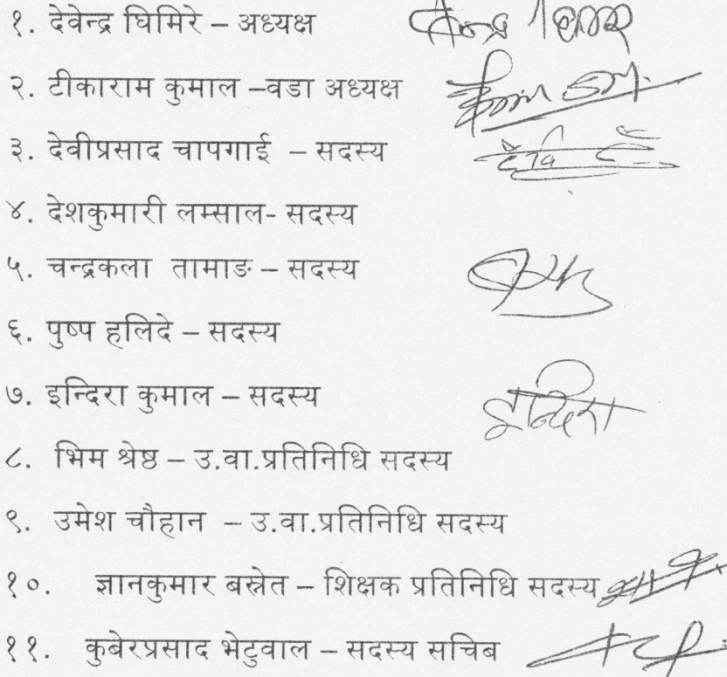 १. देवेन्द्र घिमिरे – अध्यक्ष
२. टीकाराम कुमाल –वडा अध्यक्ष
३. देवीप्रसाद चापगाई – सदस्य
४. देशकुमारी लम्साल- सदस्य
५. चन्द्रकला तामाङ – सदस्य
६. पुष्प हलिदे – सदस्य
७. इन्दिरा कुमाल – सदस्य इन्दिरा
८. भिम श्रेष्ठ – उ.वा.प्रतिनिधि सदस्य
९. उमेश चौहान – उ.वा.प्रतिनिधि सदस्य
१०. ज्ञानकुमार बस्नेत – शिक्षक प्रतिनिधि सदस्य
११. कुबेरप्रसाद भेटुवाल – सदस्य सचिब